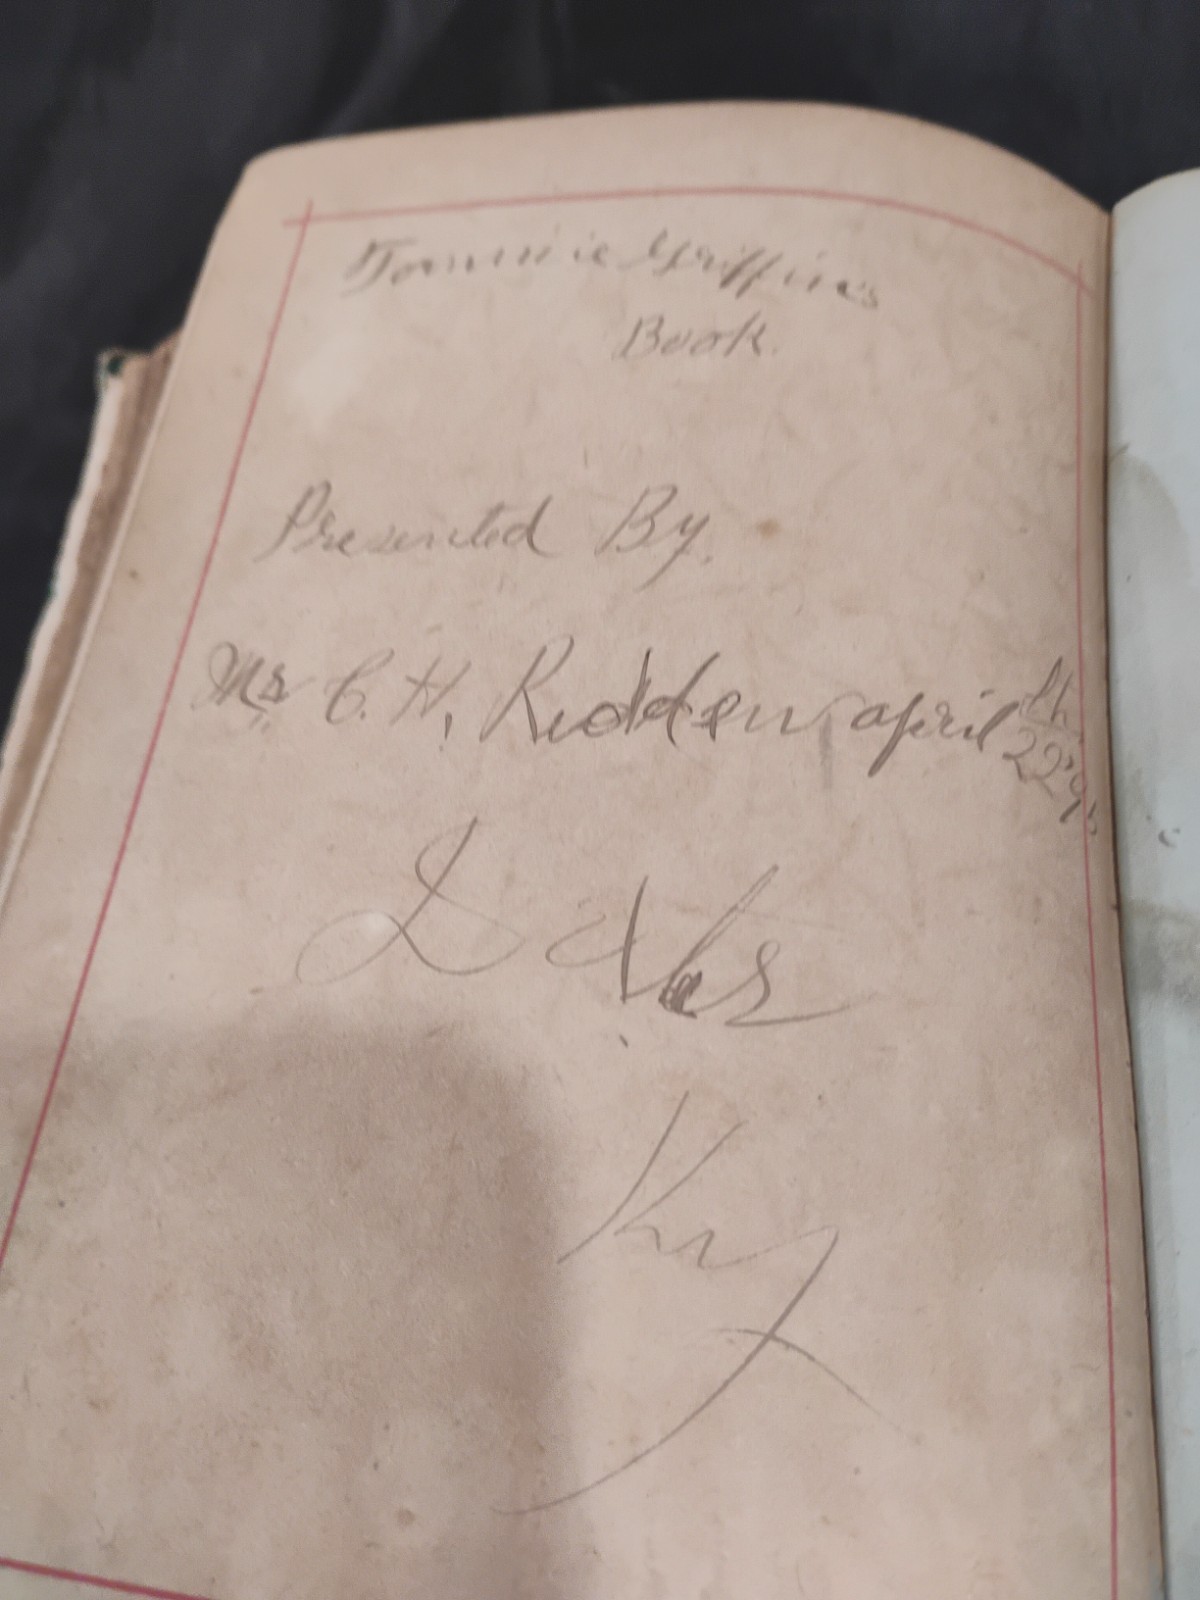 Tommie Griffines
Book.
Presented By.
Mr. C. H. Redden, april 22th
Ky